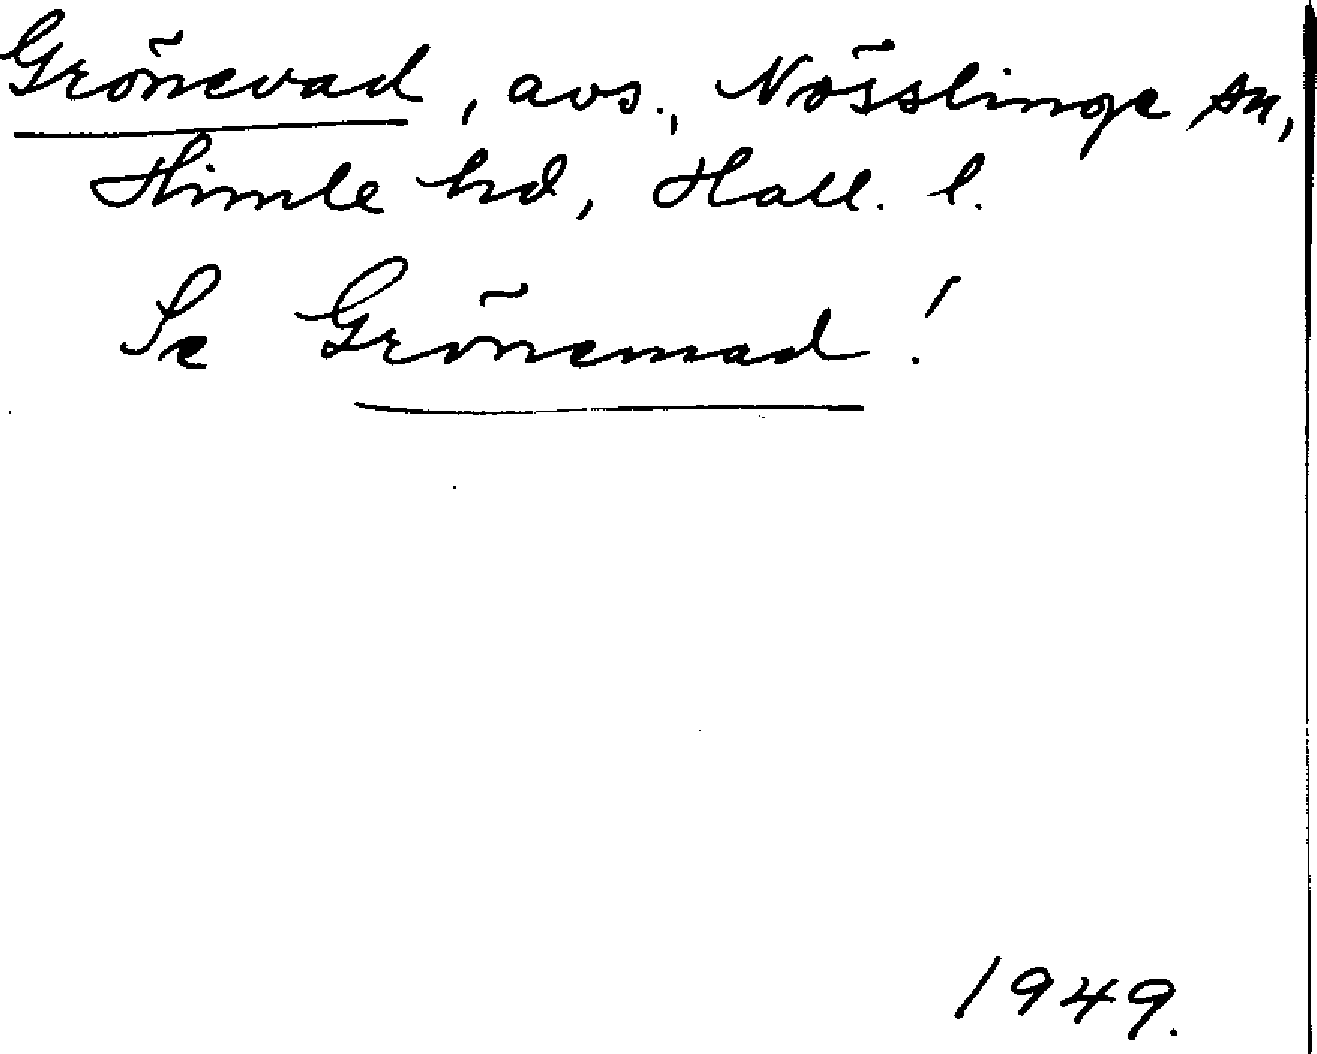 Grönevad, avs., Nösslinge sn,
Himle hd, Hall. l.
Se Grönemad!
1949.